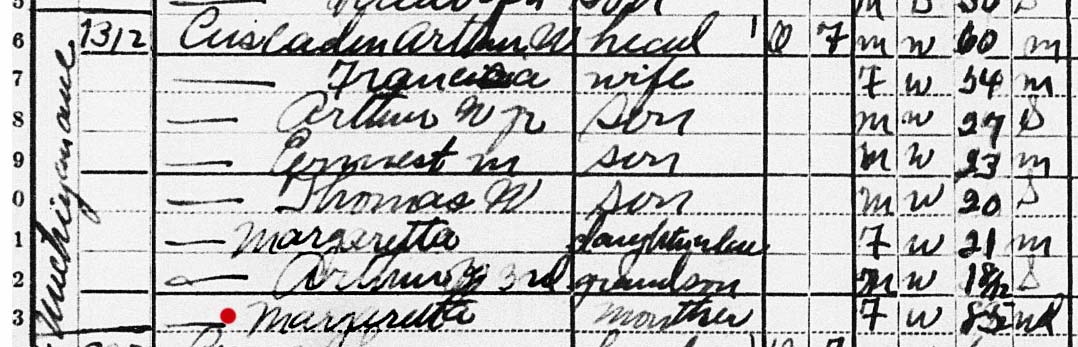 6 1312 Cuscaden Arthur W head 1 O 7 m w 60 m
7 — Francisia wife 7 w 54 m
8 — Arthur W Jr son m w 27 S
9 — Ernest M son m w 23 m
0 — Thomas W son m w 20 S
1 — Margaretta daughterinlaw 7 w 21 m
2 — Arthur W 3rd grandson m w 1 8/12 S
3 — Margaretta mother 7 w 85 wd
Michigan ave